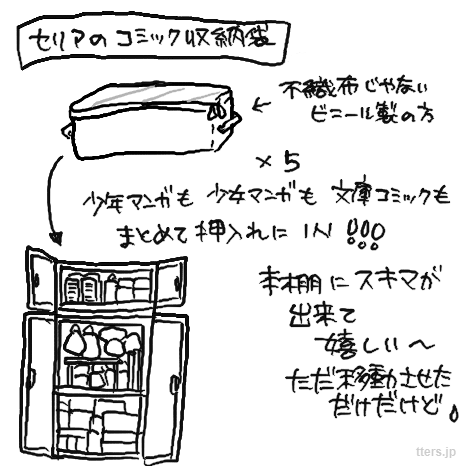 セリアのコミック収納袋
不織布じゃない
ビニール製の方
×5
少年マンガも少女マンガも文庫コミックも
まとめて押入れにIN!!!
本棚にスキマが
出来て
嬉しい〜
ただ移動させた
だけだけど。
tters.jp